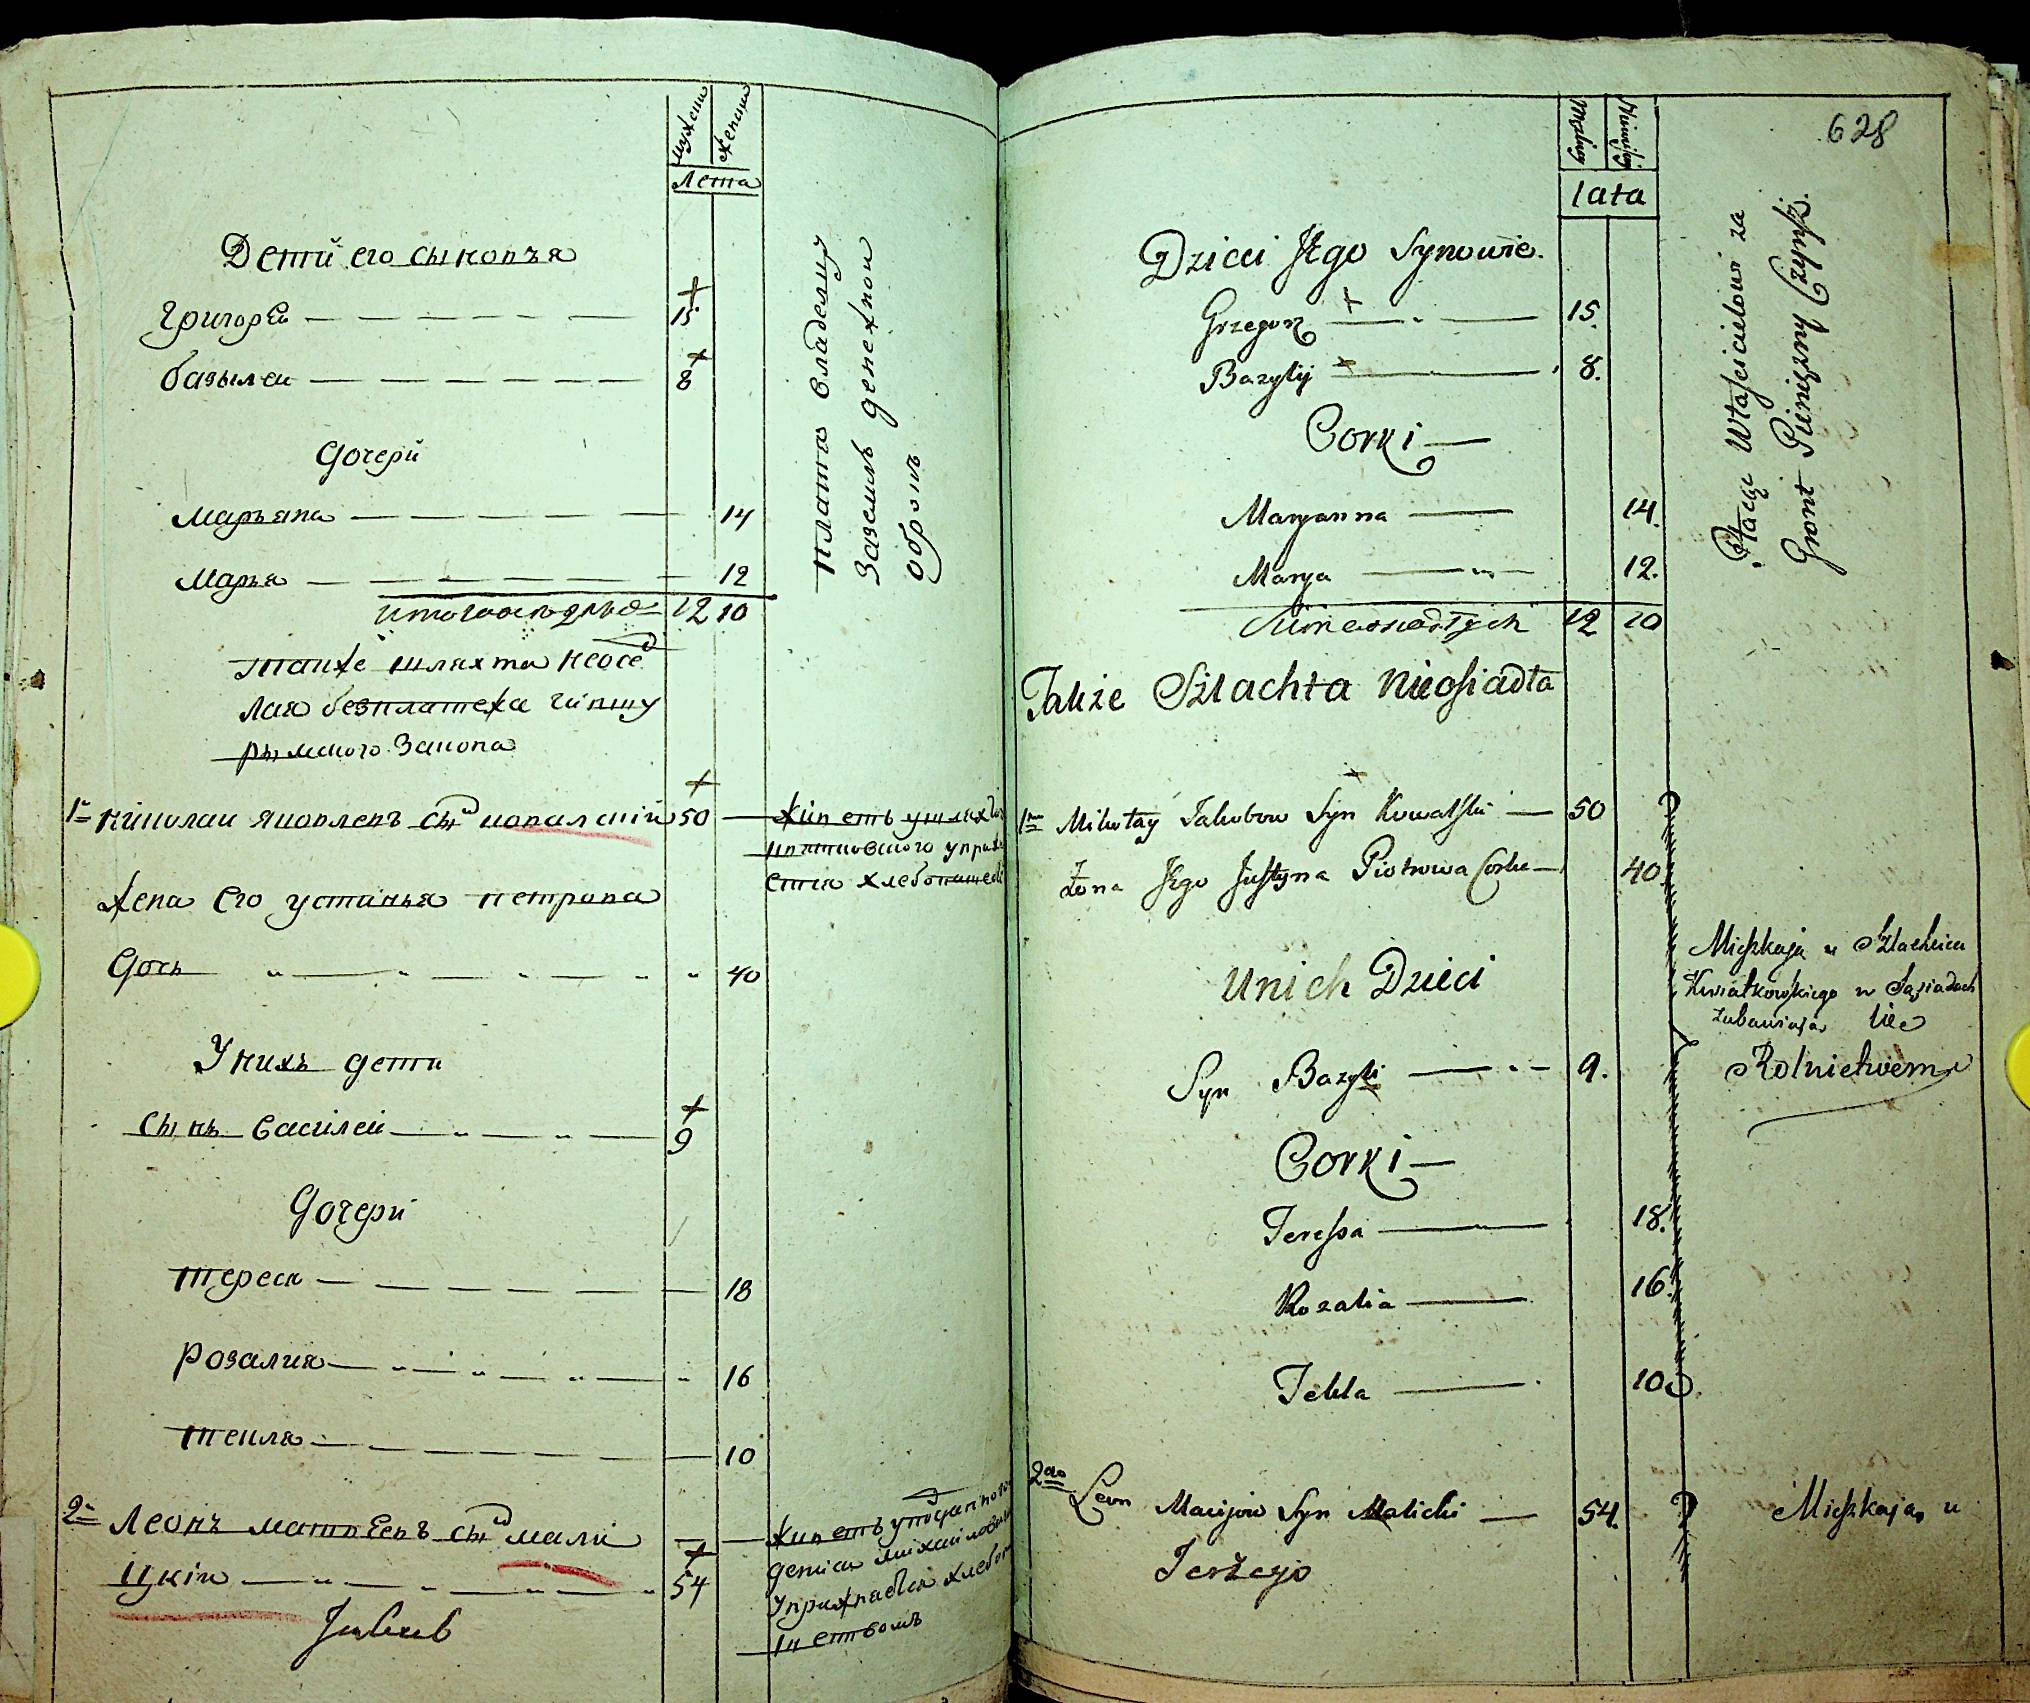 мужеска
женска
Лета
Дети его сыновья
Григорей 15
базылей 8
Дочери
марьяна 14
марья 12
итого оседлых 12 10
платя владелцу
за землю денежной
оброкъ
также шляхта неосед
лая безплатежа чиншу
рымского закона
1й николай яковлевъ сынъ ковалский 50
живетъ у шляхтича
упражн
жена его устинья петрова
дочь 40
У нихъ дети
сынъ василей 9
Дочери
тереса 18
розалия 16
текля 10
2й Леонъ матвеевъ сынъ мали
цкiй 54
живетъ
упражняется хлебопа
шествомъ
628
lata
Dzieci Jego Synowie.
Grzegorz 15.
Bazylij 8.
Corki
Maryanna 14.
Marya 12.
Summa osiadłych 12 10
Płacąc Właścicielowi za
Gront Pieniężny Czynsz.
Także Szlachta Nieosiadła
1m Mikołay Jakobow Syn Kowalski 50
Żona Jego Justyna Piotrowa Corka 40
U nich Dzieci
Mieszkają u Szlachcica
Kwiatkowskiego w Sąsiadach
zabawiają się
Rolnictwem
Syn Bazyli 9.
Corki
Teressa 18.
Rozalia 16.
Tekla 10
2do Leon Maciejow Syn Malicki 54.
Mieszkają u
Jerzego